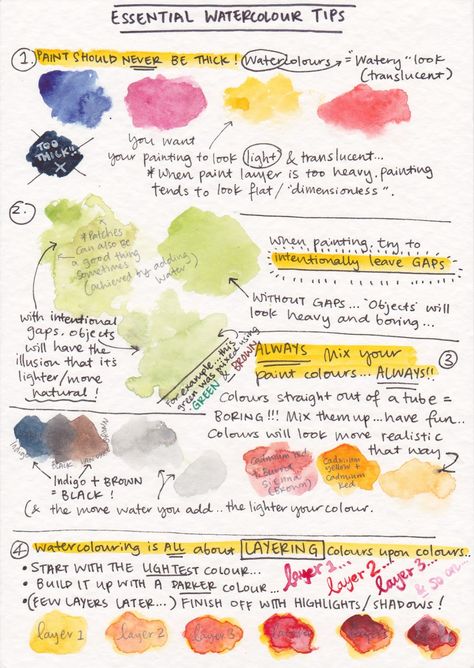 ESSENTIAL WATERCOLOUR TIPS
1. PAINT SHOULD NEVER BE THICK! Watercolours = "Watery" look
(translucent)
TOO
THICK!!
X
You want
your painting to look light & translucent...
* When paint layer is too heavy, painting
tends to look flat / "dimensionless".
2.
* Patches
can also be
a good thing
sometimes
(achieved by adding
water)
when painting, try to
intentionally leave GAPS
WITHOUT GAPS... 'Objects' will
look heavy and boring...
with intentional
gaps, objects
will have the
illusion that it's
lighter/more
natural!
For example... this
green was mixed using
GREEN & BROWN
3
ALWAYS Mix your
paint colours... ALWAYS!!
Colours straight out of a tube =
BORING!!! Mix them up... have fun...
Colours will look more realistic
that way
Indigo
BLACK
Indigo + BROWN
= BLACK!
(& the more water you add... the lighter your colour.
Cadmium red
+ Burnt
Sienna
(Brown)
Cadmium
yellow +
Cadmium
Red
4 Watercolouring is ALL about LAYERING colours upon colours...
• START WITH THE LIGHTEST COLOUR...
• BUILD IT UP WITH A DARKER COLOUR...
• (FEW LAYERS LATER...) FINISH OFF WITH HIGHLIGHTS/SHADOWS!
layer 1...
layer 2...
layer 3...
& so on...
layer 1
layer 2
layer 3
layer 4
layer 5
layer 6